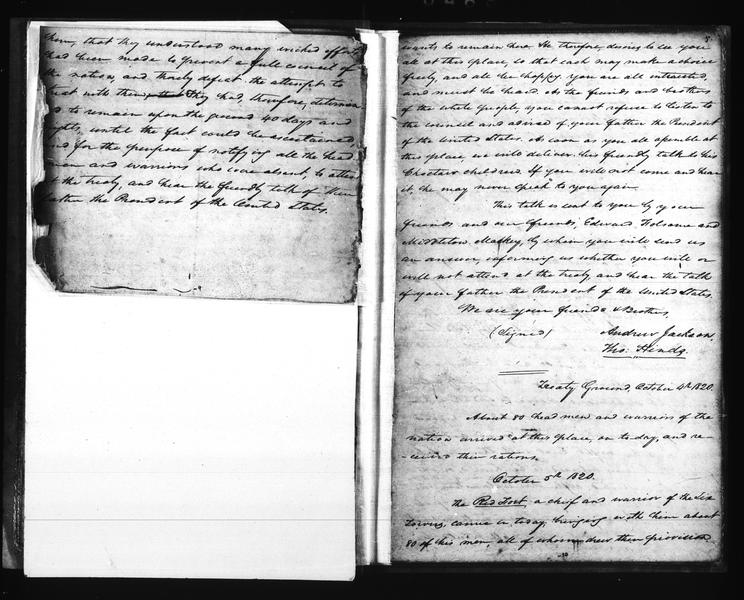 them, that they understood many wicked efforts
had been made to prevent a full council of
the nation, and thereby defeat the attempt to
treat with them, they had, therefore, determin
ed to remain upon the ground 40 days and
nights, until the fact could be ascertained,
and for the purpose of notifying all the head
men and warriors who were absent, to attend
at the treaty, and hear the friendly talk of their
father the President of the United States.
5
wants to remain here. He therefore, desires to see you
all at this place, so that each may make a choice
freely, and all be happy. you are all interested,
and must be heard. As the friends and brothers
of the whole people, you cannot refuse to listen to
the council and advice of your father the President
of the United States. As soon as you all assemble at
this place, we will deliver his friendly talk to his
Choctaw children. If you will not come and hear
it, he may never speak to you again.
This talk is sent to you by your
friends and our friends, Edward Folsome and
Middleton Mackey, by whom you will send us
an answer, informing us whether you will or
will not attend at the treaty and hear the talk
of your father the President of the United States.
We are your friends & Brothers,
(Signed) Andrew Jackson,
Tho: Hinds.
Treaty Ground, October 4th 1820.
About 80 head men and warriors of the
nation arrived at this place, on to-day, and re-
-ceived their rations.
October 5th 1820.
The Red Fort, a chief and warrior of the Six
Towns, came in today, bringing with him about
80 of his men, all of whom drew their provision